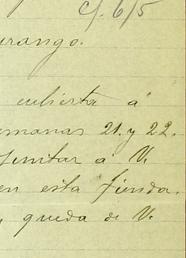 c/. 6/5
urango.
cubierta á
emanas 21. y 22.
sentar á V.
en esta fienda.
, queda de V.